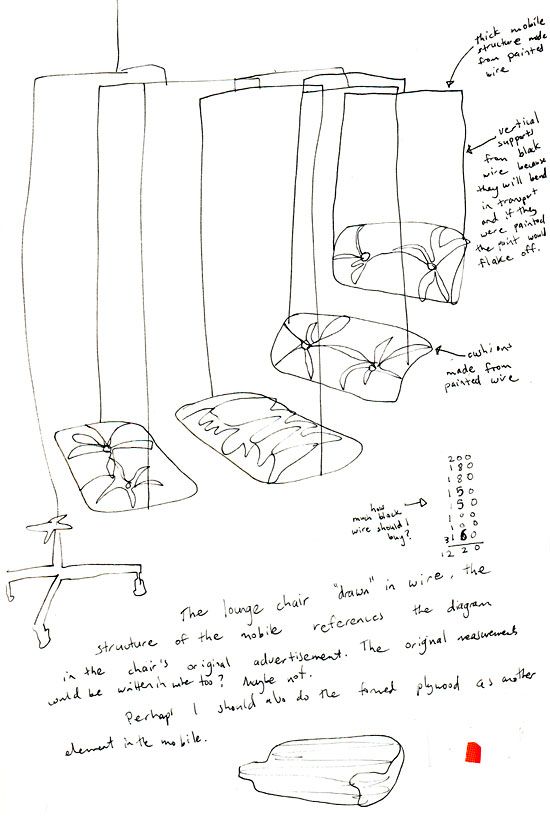 thick mobile
structure made
from painted
wire
vertical
supports
from black
wire because
they will bend
in transport
and if they
were painted
the paint would
flake off.
cushions
made from
painted wire
how
much black
wire should I
buy?
200
180
180
150
150
100
100
160
1220
The lounge chair "drawn" in wire, the
structure of the mobile references the diagram
in the chair's original advertisement. The original measurements
would be written in wire too? Maybe not.
Perhaps I should also do the formed plywood as another
element in the mobile.